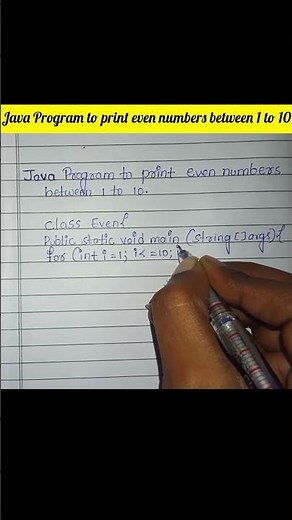 Java Program to print even numbers between 1 to 10
Java Program to print even numbers
between 1 to 10.
class Even{
Public static void main (string []args){
for (int i=1; i<=10;